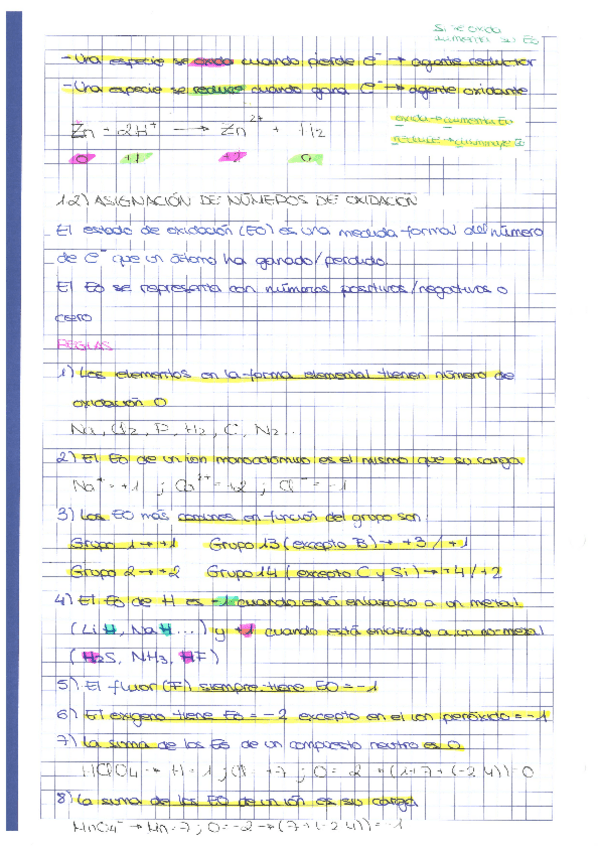 Si se oxida
aumenta su EO
- Una especie se oxida cuando pierde e⁻ → agente reductor
- Una especie se reduce cuando gana e⁻ → agente oxidante
oxida → aumenta EO
reduce → disminuye EO
Zn + 2H⁺ → Zn²⁺ + H₂
0 +1 +2 0
1.2) ASIGNACIÓN DE NÚMEROS DE OXIDACIÓN
El estado de oxidación (EO) es una medida formal del número
de e⁻ que un átomo ha ganado/perdido.
El EO se representa con números positivos/negativos o
cero
REGLAS
1) Los elementos en la forma elemental tienen número de
oxidación 0
Na, Cl₂, P, H₂, C, N₂...
2) El EO de un ion monoatómico es el mismo que su carga
Na⁺ = +1 ; Ca²⁺ = +2 ; Cl⁻ = -1
3) Los EO más comunes en función del grupo son:
Grupo 1 → +1 Grupo 13 (excepto B) → +3 / +1
Grupo 2 → +2 Grupo 14 (excepto C y Si) → +4 / +2
4) El EO de H es -1 cuando está enlazado a un metal
(LiH, NaH...) y +1 cuando está enlazado a un no-metal
(H₂S, NH₃, HF)
5) El fluor (F) siempre tiene EO = -1
6) El oxígeno tiene EO = -2 excepto en el ion peróxido = -1
7) La suma de los EO de un compuesto neutro es 0
HClO₄ → H = 1 ; Cl = +7 ; O = -2 → (1+7+(-2·4)) = 0
8) La suma de los EO de un ión es su carga
MnO₄⁻ → Mn = 7 ; O = -2 → (7+(-2·4)) = -1